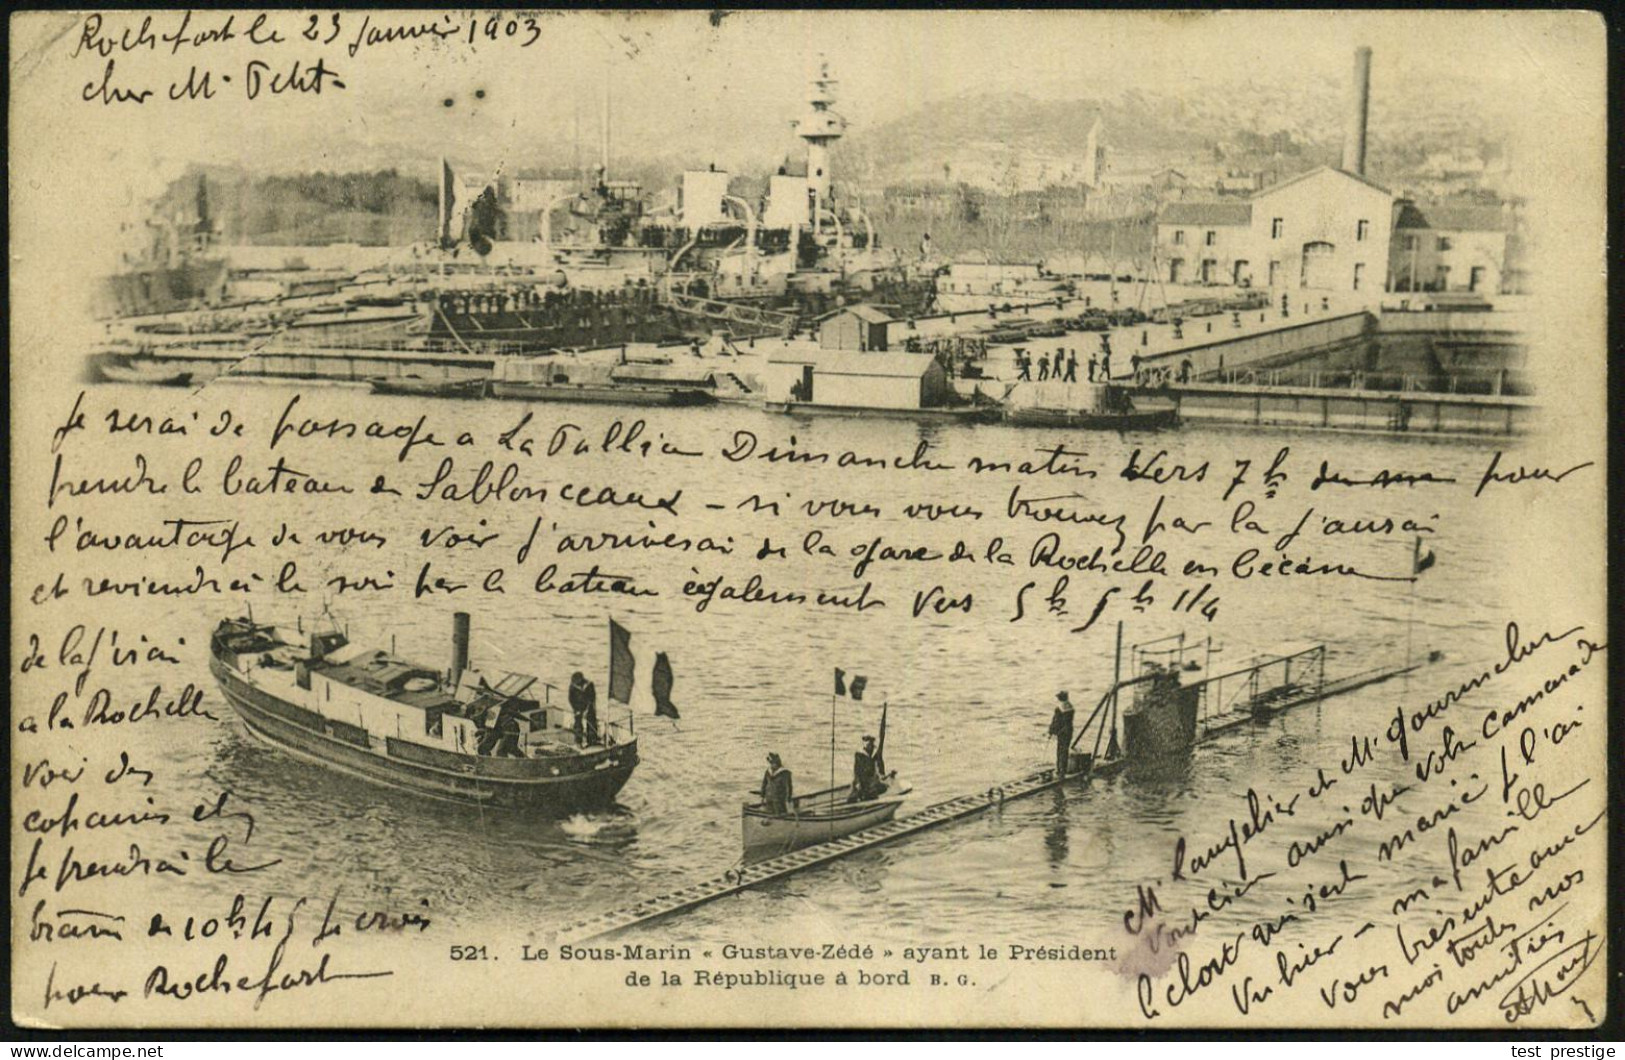 Rochefort le 23 Janvier 1903
cher Mr Petit-
Je serai de passage a La Pallice Dimanche matin Vers 7h pour
prendre le bateau de Sablonceaux - si vous vous trouvez par la j'aurai
l'avantage de vous voir j'arriverai de la gare de la Rochelle en bécane
et reviendrai le soir par le bateau également Vers 5h 5h 1/4
de la j'irai
a la Rochelle
voir des
copains et
Je prendrai le
train de 10h45 je crois
pour Rochefort
521. Le Sous-Marin « Gustave-Zédé » ayant le Président
de la République à bord B. G.
Mr Laugelier et Mr
ainsi que votre camarade
qui s'est marié je l'ai
Vu hier - ma famille
Vous présente avec
moi toutes nos
amitiés
test prestige